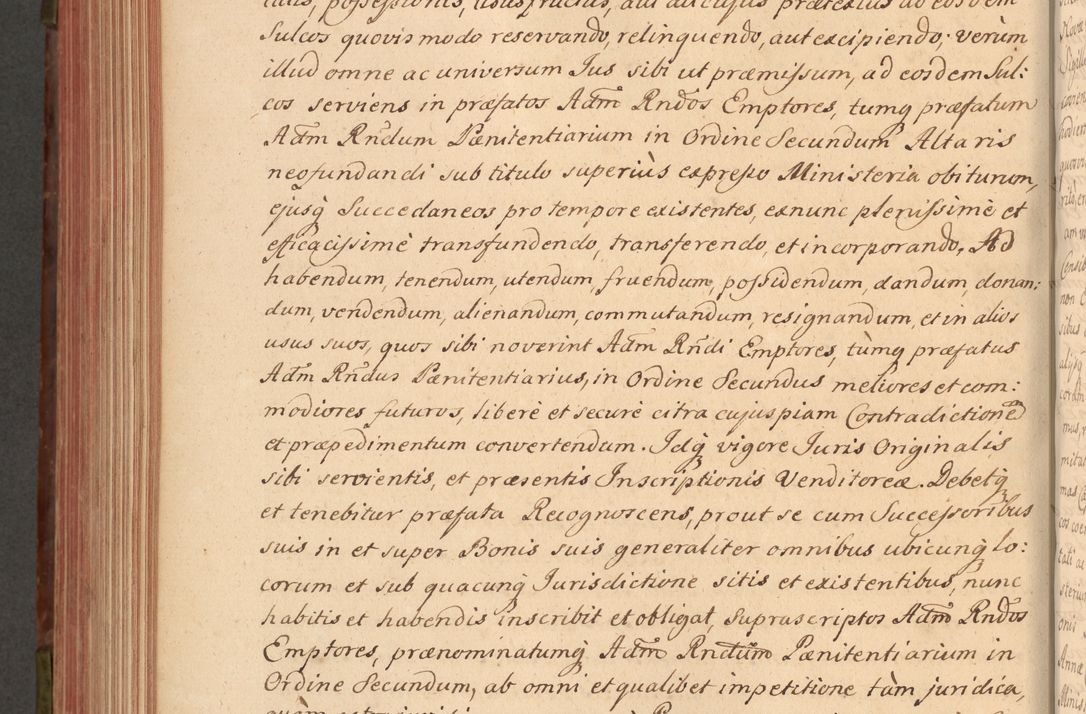 possessionis, ususfructus, aut alicujus prætextus ad eosdem
Sulcos quovis modo reservando, relinquendo, aut excipiendo; verùm
illud omne ac universum Jus sibi ut præmissum, ad eosdem Sul:
cos serviens in præfatos Adm Rndos Emptores, tumq præfatum
Adm Rndum Pænitentiarium in Ordine Secundum Altaris
neofundandi sub titulo superiùs expresso Ministeria obiturum,
ejusq Succedaneos pro tempore existentes, exnunc plenissimè et
efficacissimè transfundendo, transferendo, et incorporando. Ad
habendum, tenendum, utendum, fruendum, possidendum, dandum, donan:
dum, vendendum, alienandum, commutandum, resignandum, et in alios
usus suos, quos sibi noverint Adm Rndi Emptores, tùmq præfatus
Adm Rndus Pænitentiarius, in Ordine Secundus meliores et com:
modiores futuros, liberè et securè citra cujuspiam Contradictionem
et præpedimentum convertendum. Idq vigore Juris Originalis
sibi servientis, et præsentis Inscriptionis Venditoreæ. Debetq
et tenebitur præfata Recognoscens, prout se cum Successoribus
suis in et super Bonis suis generaliter omnibus ubicunq lo:
corum et sub quacunq Jurisdictione sitis et existentibus, nunc
habitis et habendis inscribit et obligat, suprascriptos Adm Rndos
Emptores, prænominatumq Adm Rndum Pænitentiarium in
Ordine Secundum, ab omni et qualibet impetitione tàm juridica,